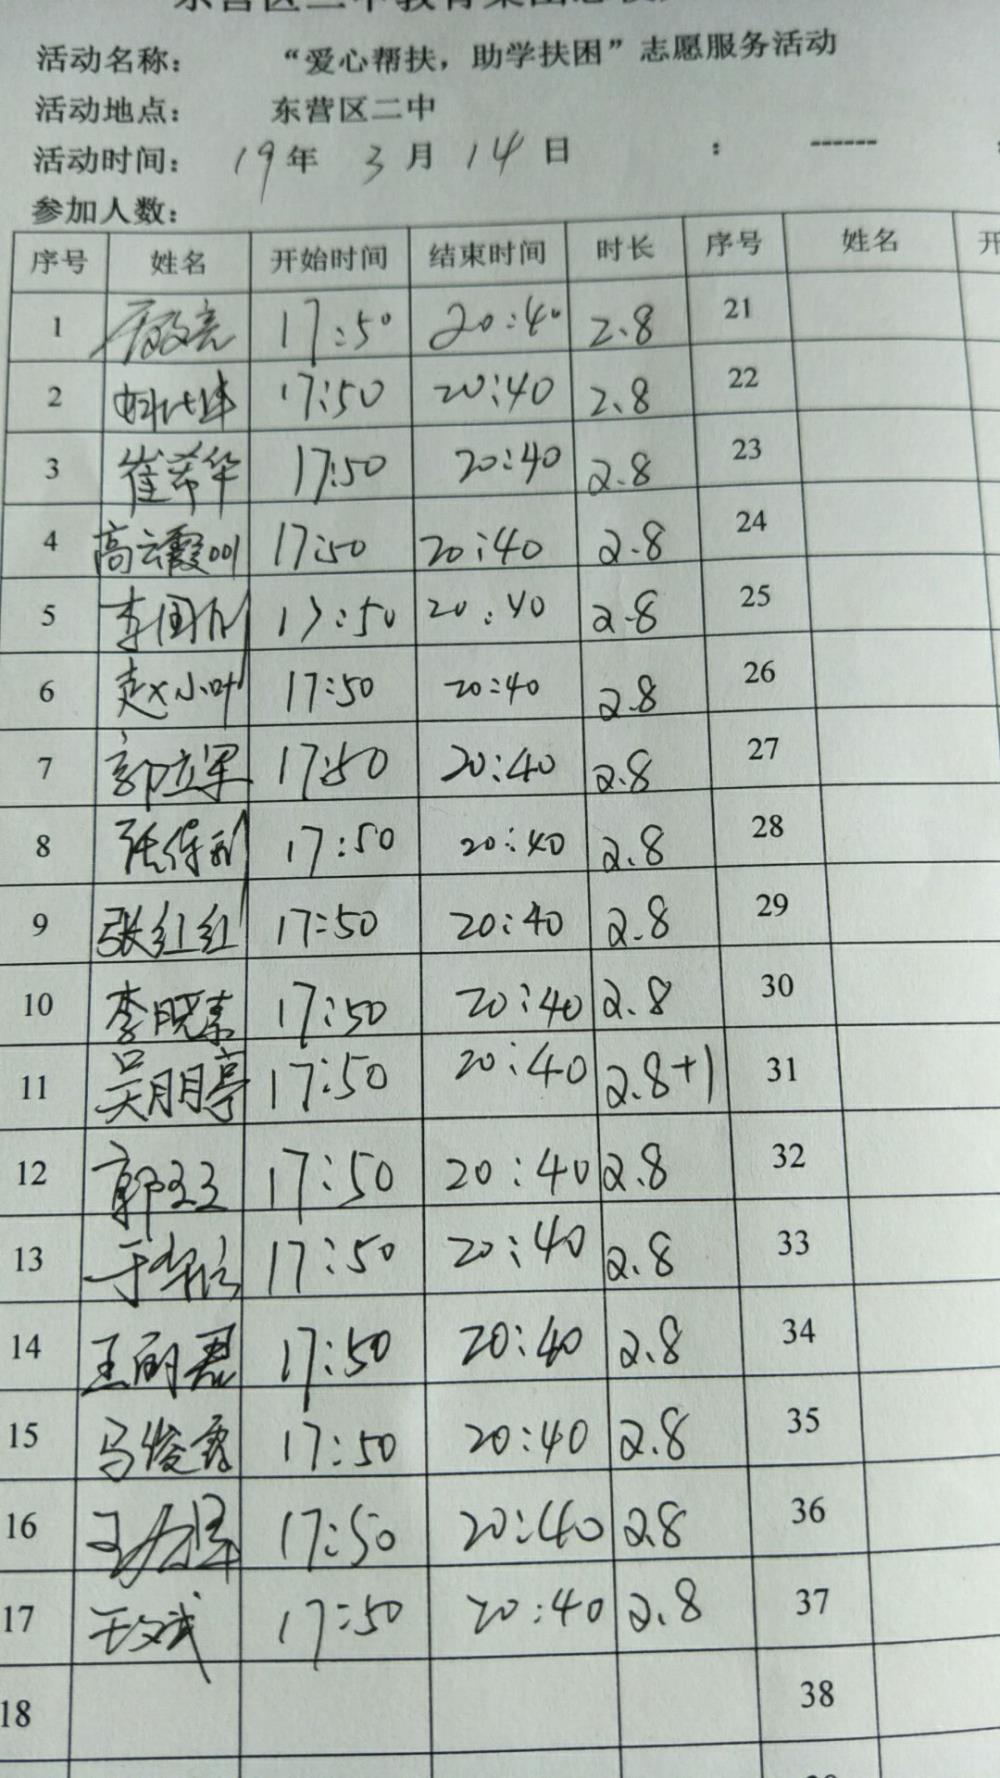 活动名称： “爱心帮扶，助学扶困”志愿服务活动
活动地点： 东营区二中
活动时间： 19年 3月 14日 : ------
参加人数：
序号 姓名 开始时间 结束时间 时长 序号 姓名 开
1 17:50 20:40 2.8 21
2 17:50 20:40 2.8 22
3 崔希华 17:50 20:40 2.8 23
4 高云霞001 17:50 20:40 2.8 24
5 李国 17:50 20:40 2.8 25
6 赵小叶 17:50 20:40 2.8 26
7 郭立军 17:50 20:40 2.8 27
8 张 17:50 20:40 2.8 28
9 张红红 17:50 20:40 2.8 29
10 李晓素 17:50 20:40 2.8 30
11 吴朋亭 17:50 20:40 2.8+1 31
12 郭 17:50 20:40 2.8 32
13 于 17:50 20:40 2.8 33
14 王丽君 17:50 20:40 2.8 34
15 马俊霞 17:50 20:40 2.8 35
16 王 17:50 20:40 2.8 36
17 王文武 17:50 20:40 2.8 37
18 38